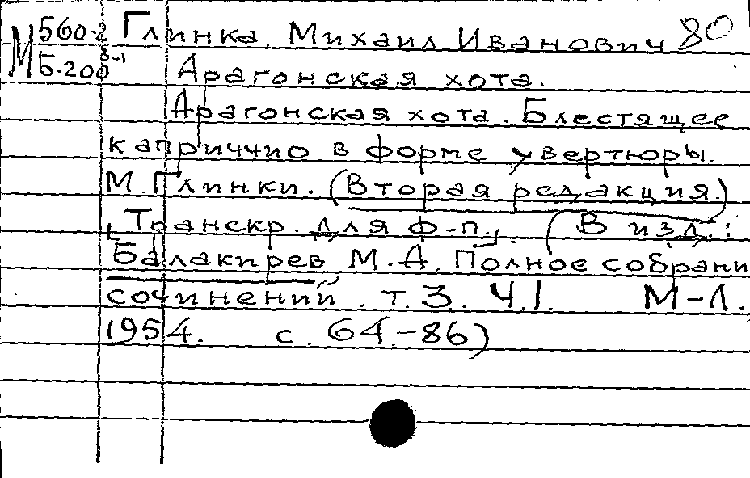 М 560-2 Глинка, Михаил Иванович 80
Б.200 8-1 Арагонская хота.
Арагонская хота. Блестящее
каприччио в форме увертюры.
М. Глинки. (Вторая редакция)
[Транскр. для ф-п.]. (В изд.:
Балакирев М.А. Полное собрани
сочинений. т. 3. ч. 1. М-Л.
1954. с. 64-86)